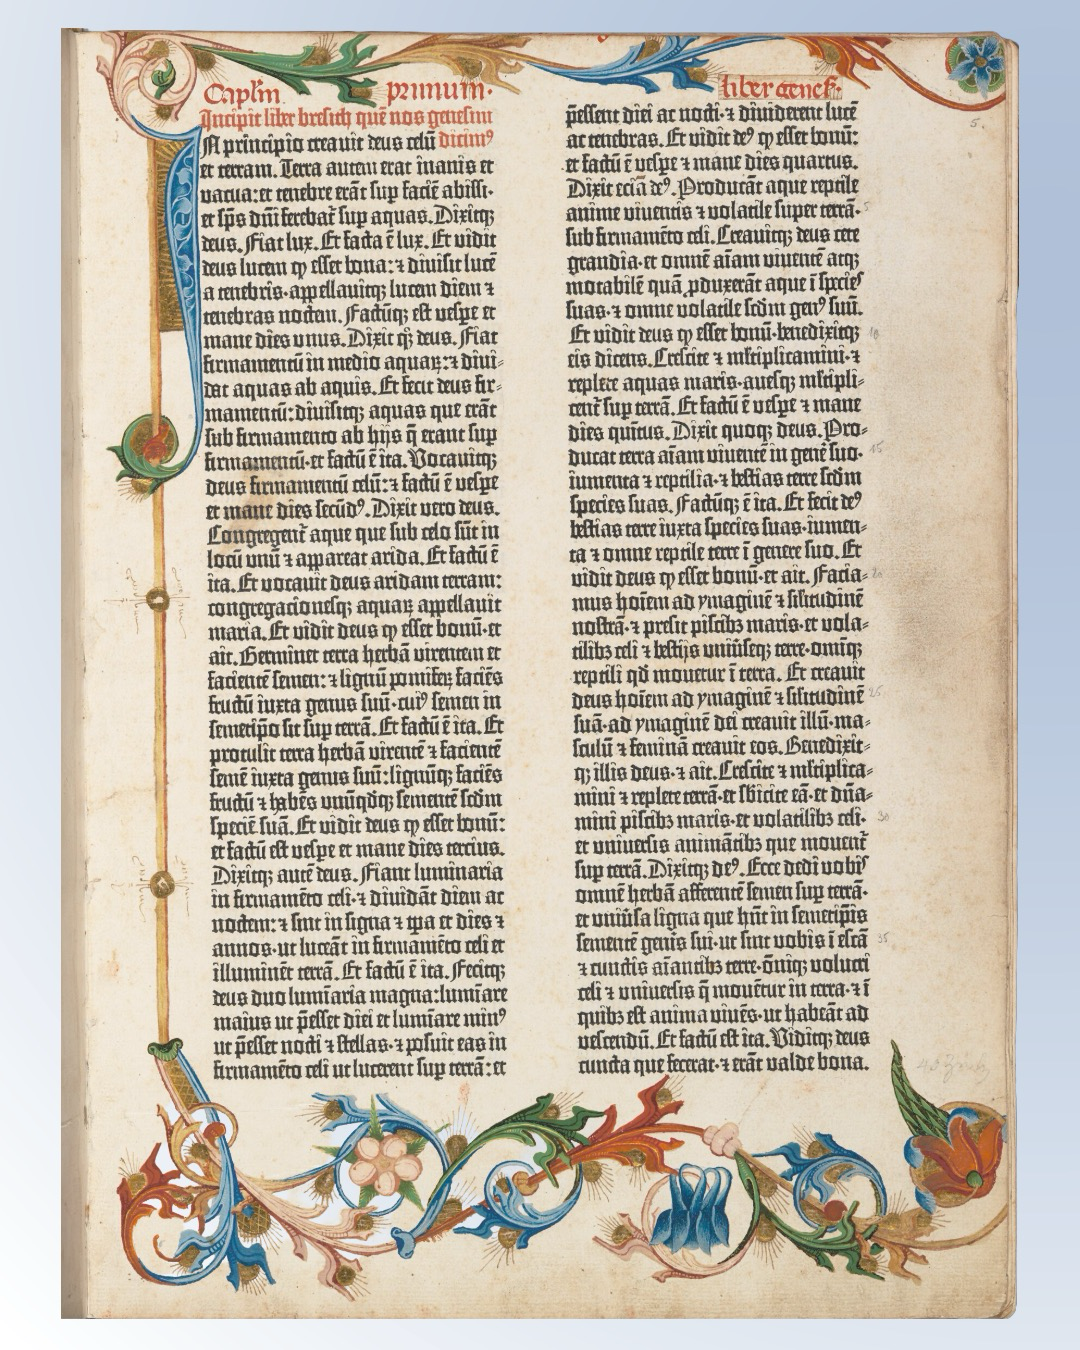 Caplm primum·
liber genes.
Incipit liber bresith quē nos genesim
dicimꝰ
In principio creavit deus celū
et terram. Terra autem erat inanis et
vacua: et tenebre erāt sup faciē abissi·
et sp̄s dn̄i ferebat̄ sup aquas. Dixitqꝫ
deus. Fiat lux. Et facta ē lux. Et vidit
deus lucem ꝙ esset bona: ⁊ divisit lucē
a tenebris·appellavitqꝫ lucem diem ⁊
tenebras noctem. Factūqꝫ est vespe et
mane dies unus. Dixit qꝫ deus. Fiat
firmamentū in medio aquaꝝ: ⁊ divi⸗
dat aquas ab aquis. Et fecit deus fir⸗
mamentū: divisitqꝫ aquas que erāt
sub firmamento ab hijs q̄ erant sup
firmamentū·et factū ē ita. Vocavitqꝫ
deus firmamentū celū: ⁊ factū ē vespe
et mane dies secūdꝰ. Dixit vero deus.
Congregent̄ aque que sub celo sūt in
locū unū ⁊ appareat arida. Et factū ē
ita. Et vocavit deus aridam terram:
congregacionesqꝫ aquaꝝ appellavit
maria. Et vidit deus ꝙ esset bonū·et
ait. Germinet terra herbā virentem et
facientē semen: ⁊ lignū pomiferꝫ faciēs
fructū iuxta genus suū·cuiꝰ semen in
semetip̄o sit sup terrā. Et factū ē ita. Et
protulit terra herbā virentē ⁊ facientē
semē iuxta genus suū: lignūqꝫ faciēs
fructū ⁊ habēs unūqdqꝫ sementē scdm
speciē suā. Et vidit deus ꝙ esset bonū:
et factū est vespe et mane dies tercius.
Dixitqꝫ autē deus. Fiant luminaria
in firmamēto celi·⁊ dividāt diem ac
noctem: ⁊ sint in signa ⁊ tp̄a et dies ⁊
annos·ut luceāt in firmamēto celi et
illuminēt terrā. Et factū ē ita. Fecitqꝫ
deus duo lumīaria magna: lumīare
maius ut p̄esset diei et lumīare minꝰ
ut p̄esset nocti ⁊ stellas·⁊ posuit eas in
firmamēto celi ut lucerent sup terrā: et
p̄essent diei ac nocti·⁊ dividerent lucē
ac tenebras. Et vidit deꝰ ꝙ esset bonū:
et factū ē vespe ⁊ mane dies quartus.
Dixit eciā deꝰ. Producāt aque reptile
anime viventis ⁊ volatile super terrā· 5
sub firmamēto celi. Creavitqꝫ deus cete
grandia·et omnē aīam viventē atqꝫ
motabilē quā ꝓduxerāt aque ī species
suas·⁊ omne volatile scdm genꝰ suū.
Et vidit deus ꝙ esset bonū·benedixitqꝫ 10
eis dicens. Crescite ⁊ mltiplicamini·⁊
replete aquas maris·avesqꝫ mltipli⸗
cent̄ sup terrā. Et factū ē vespe ⁊ mane
dies quītus. Dixit quoqꝫ deus. Pro⸗
ducat terra aīam viventē in genē suo· 15
iumenta ⁊ reptilia·⁊ bestias terre scdm
species suas. Factūqꝫ ē ita. Et fecit deꝰ
bestias terre iuxta species suas·iumen⸗
ta ⁊ omne reptile terre ī genere suo. Et
vidit deus ꝙ esset bonū·et ait. Facia⸗ 20
mus hoīem ad ymaginē ⁊ silitudinē
nostrā·⁊ presit piscibꝫ maris·et vola⸗
tilibꝫ celi ⁊ bestijs univseqꝫ terre·omīqꝫ
reptili qd movetur ī terra. Et creavit
deus hoīem ad ymaginē ⁊ silitudinē 25
suā·ad ymaginē dei creavit illū·ma⸗
sculū ⁊ feminā creavit eos. Benedixit⸗
qꝫ illis deus·⁊ ait. Crescite ⁊ mltiplica⸗
mini ⁊ replete terrā·et sbicite eā·et dn̄a⸗
mini piscibꝫ maris·et volatilibꝫ celi· 30
et universis animātibꝫ que movent̄
sup terrā. Dixitqꝫ deꝰ. Ecce dedi vobis
omnē herbā afferentē semen sup terrā·
et univsa ligna que hn̄t in semetip̄is
sementē genis sui·ut sint vobis ī escā 35
⁊ cunctis aīantibꝫ terre·ōnīqꝫ volucri
celi ⁊ universis q̄ movētur in terra·⁊ ī
quibꝫ est anima vivēs·ut habeāt ad
vescendū. Et factū est ita. Viditqꝫ deus
cuncta que fecerat·⁊ erāt valde bona.
5.